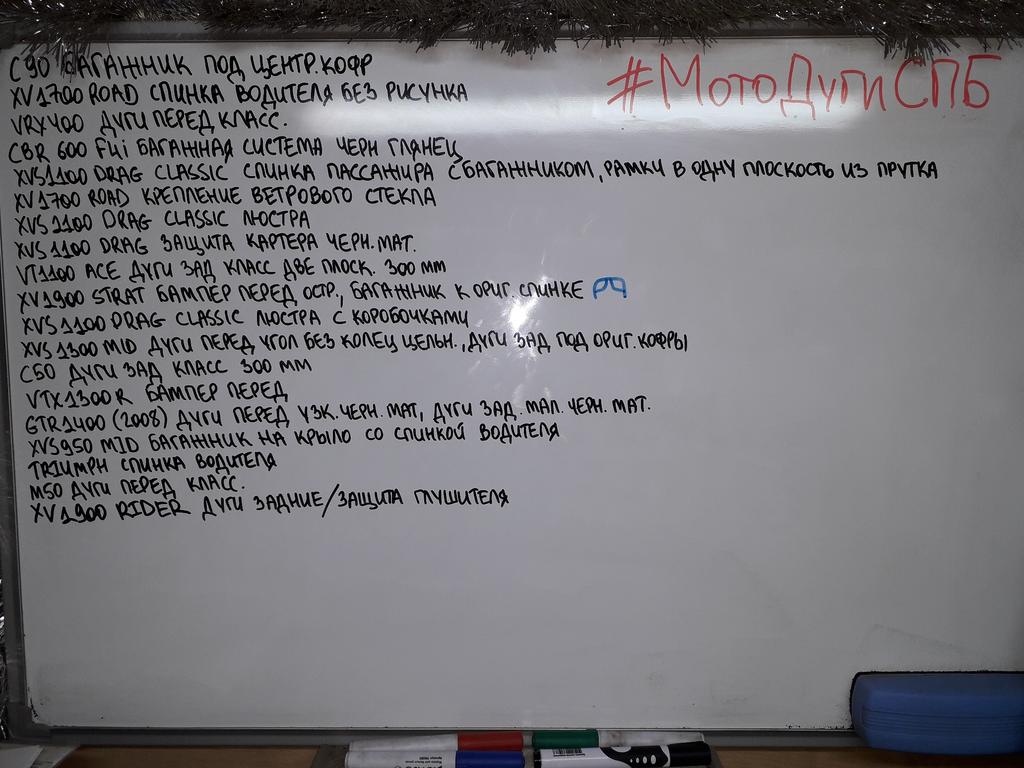 #МотоДугиСПБ
C90 БАГАЖНИК ПОД ЦЕНТР.КОФР
XV1700 ROAD СПИНКА ВОДИТЕЛЯ БЕЗ РИСУНКА
VRX400 ДУГИ ПЕРЕД КЛАСС.
CBR 600 F4i БАГАЖНАЯ СИСТЕМА ЧЕРН ГЛЯНЕЦ
XVS1100 DRAG CLASSIC СПИНКА ПАССАЖИРА С БАГАЖНИКОМ, РАМКИ В ОДНУ ПЛОСКОСТЬ ИЗ ПРУТКА
XV1700 ROAD КРЕПЛЕНИЕ ВЕТРОВОГО СТЕКЛА
XVS1100 DRAG CLASSIC ЛЮСТРА
XVS1100 DRAG ЗАЩИТА КАРТЕРА ЧЕРН.МАТ.
VT1100 ACE ДУГИ ЗАД КЛАСС ДВЕ ПЛОСК. 300 ММ
XV1900 STRAT БАМПЕР ПЕРЕД ОСТР., БАГАЖНИК К ОРИГ.СПИНКЕ
XVS1100 DRAG CLASSIC ЛЮСТРА С КОРОБОЧКАМИ
XVS1300 MID ДУГИ ПЕРЕД УГОЛ БЕЗ КОЛЕЦ ЦЕЛЬН., ДУГИ ЗАД ПОД ОРИГ.КОФРЫ
C50 ДУГИ ЗАД КЛАСС 300 ММ
VTX1300R БАМПЕР ПЕРЕД
GTR1400 (2008) ДУГИ ПЕРЕД УЗК.ЧЕРН.МАТ, ДУГИ ЗАД.МАЛ.ЧЕРН.МАТ.
XVS950 MID БАГАЖНИК НА КРЫЛО СО СПИНКОЙ ВОДИТЕЛЯ
TRIUMPH СПИНКА ВОДИТЕЛЯ
M50 ДУГИ ПЕРЕД КЛАСС.
XV1900 RIDER ДУГИ ЗАДНИЕ/ЗАЩИТА ГЛУШИТЕЛЯ